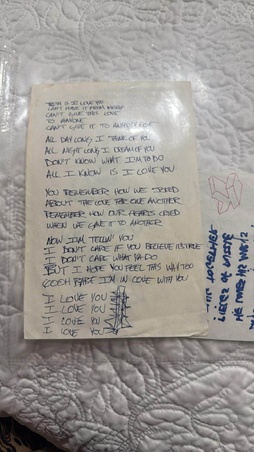 TRUTH IS I LOVE YOU
CAN'T HAVE IT FROM
CAN'T GIVE THIS LOVE
TO ANYONE
CAN'T GIVE IT TO
ALL DAY LONG I THINK OF YOU
ALL NIGHT LONG I DREAM OF YOU
DON'T KNOW WHAT I'M TO DO
ALL I KNOW IS I LOVE YOU
YOU REMEMBER HOW WE
ABOUT THE LOVE FOR ONE ANOTHER
REMEMBER HOW OUR HEARTS CRIED
WHEN WE GAVE IT TO ANOTHER
NOW I'M TELLIN' YOU
I DON'T CARE IF YOU BELIEVE ITS TRUE
I DON'T CARE WHAT YA DO
BUT I HOPE YOU FEEL THIS WAY TOO
GOSH BABE I'M IN LOVE WITH YOU
I LOVE YOU
I LOVE YOU
I LOVE YOU
I LOVE YOU
THE